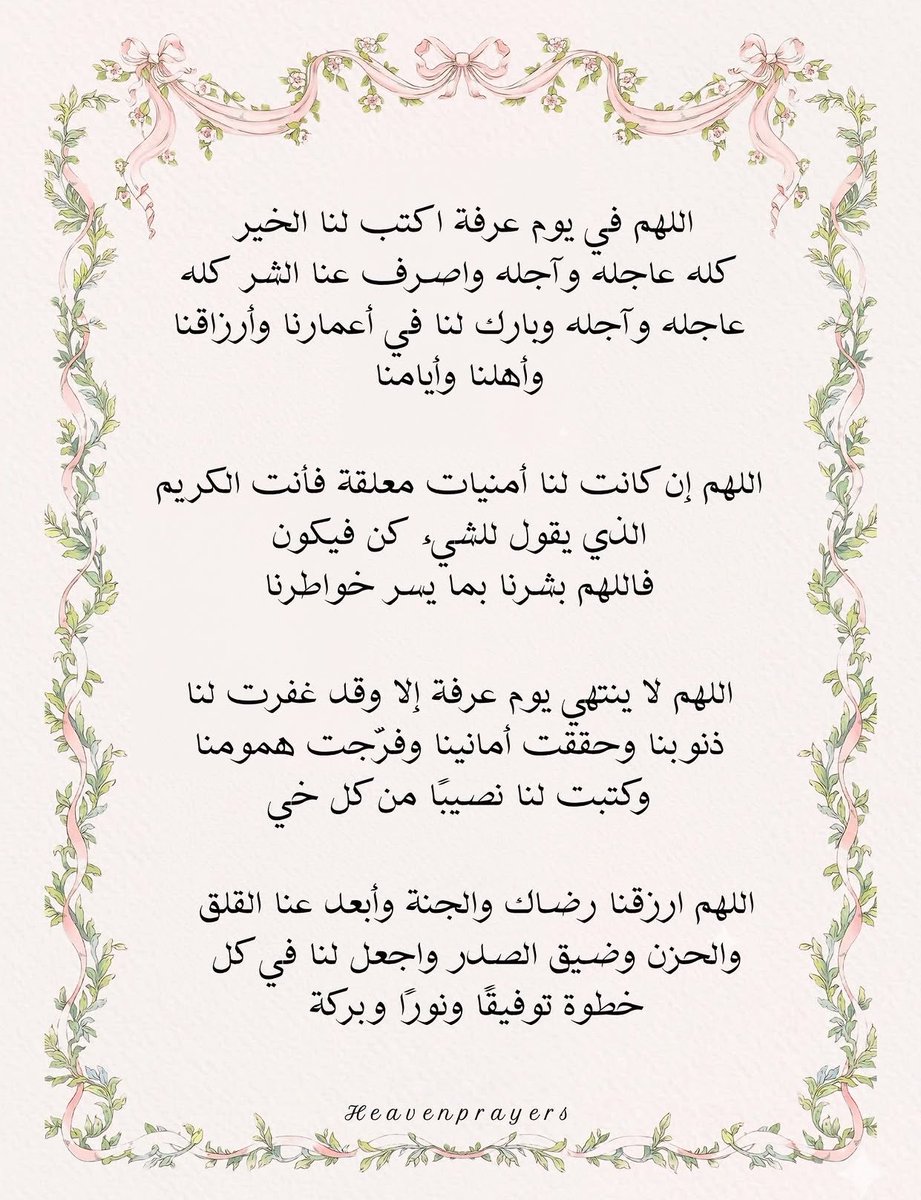 اللهم في يوم عرفة اكتب لنا الخير
كله عاجله وآجله واصرف عنا الشر كله
عاجله وآجله وبارك لنا في أعمارنا وأرزاقنا
وأهلنا وأيامنا
اللهم إن كانت لنا أمنيات معلقة فأنت الكريم
الذي يقول للشيء كن فيكون
فاللهم بشرنا بما يسر خواطرنا
اللهم لا ينتهي يوم عرفة إلا وقد غفرت لنا
ذنوبنا وحققت أمانينا وفرّجت همومنا
وكتبت لنا نصيبًا من كل خي
اللهم ارزقنا رضاك والجنة وأبعد عنا القلق
والحزن وضيق الصدر واجعل لنا في كل
خطوة توفيقًا ونورًا وبركة
Heavenprayers